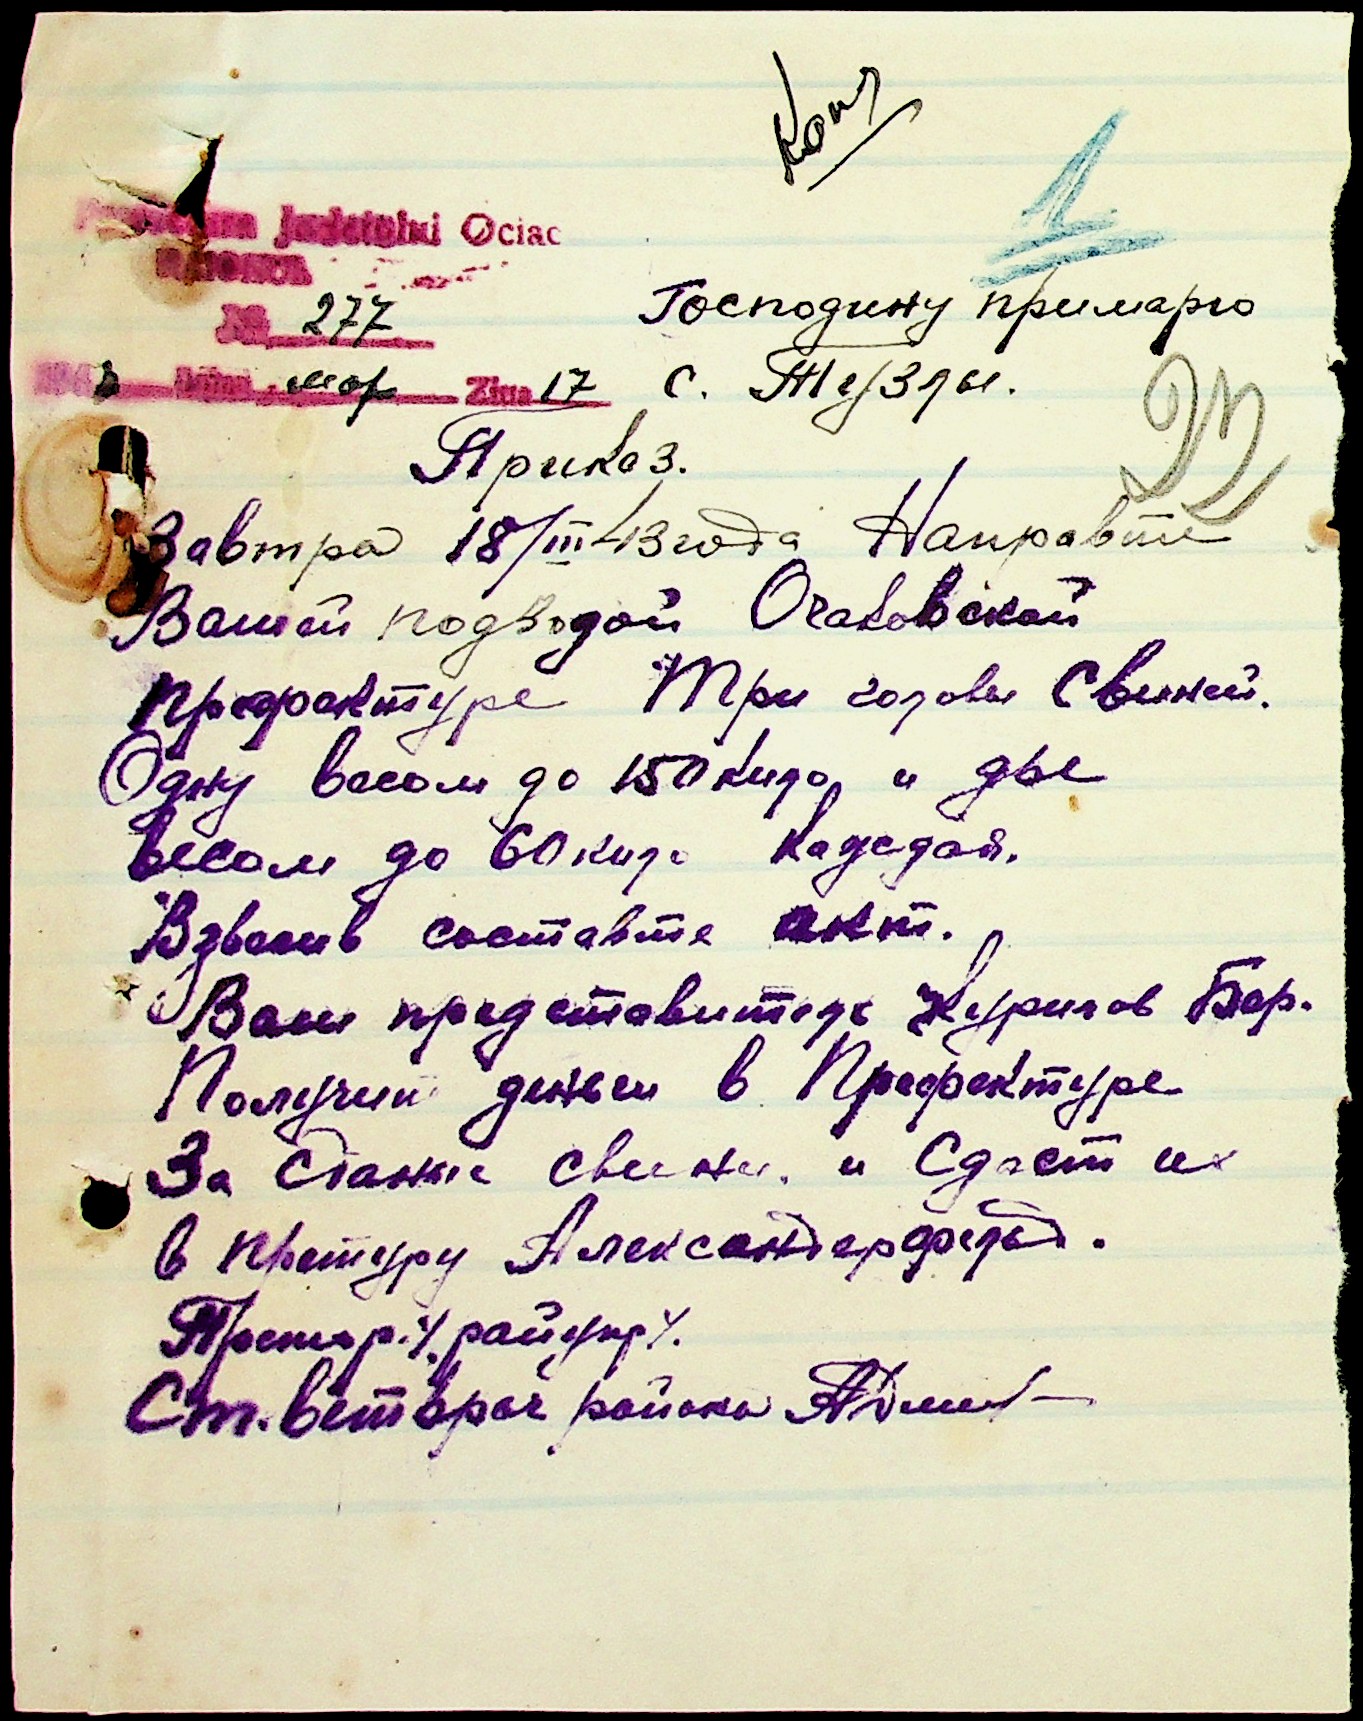 Копия
Prefectura Judetului Ociac
№ 277
1943 Luna мар Ziua 17
Господину примарю
с. Тузлы.
22
Приказ.
Завтра 18/III-43 года Направте
Вашей подводой Очаковской
префектуре Три головы Свиней.
Одну весом до 150 кило и две
весом до 60 кило каждая.
Взвесив составте акт.
Ваш представитель Бер.
Получит деньги в Префектуре
За Сданые свиньи. и Сдаст их
в претуру Александерфельд.
Претор
Ст. ветврач района